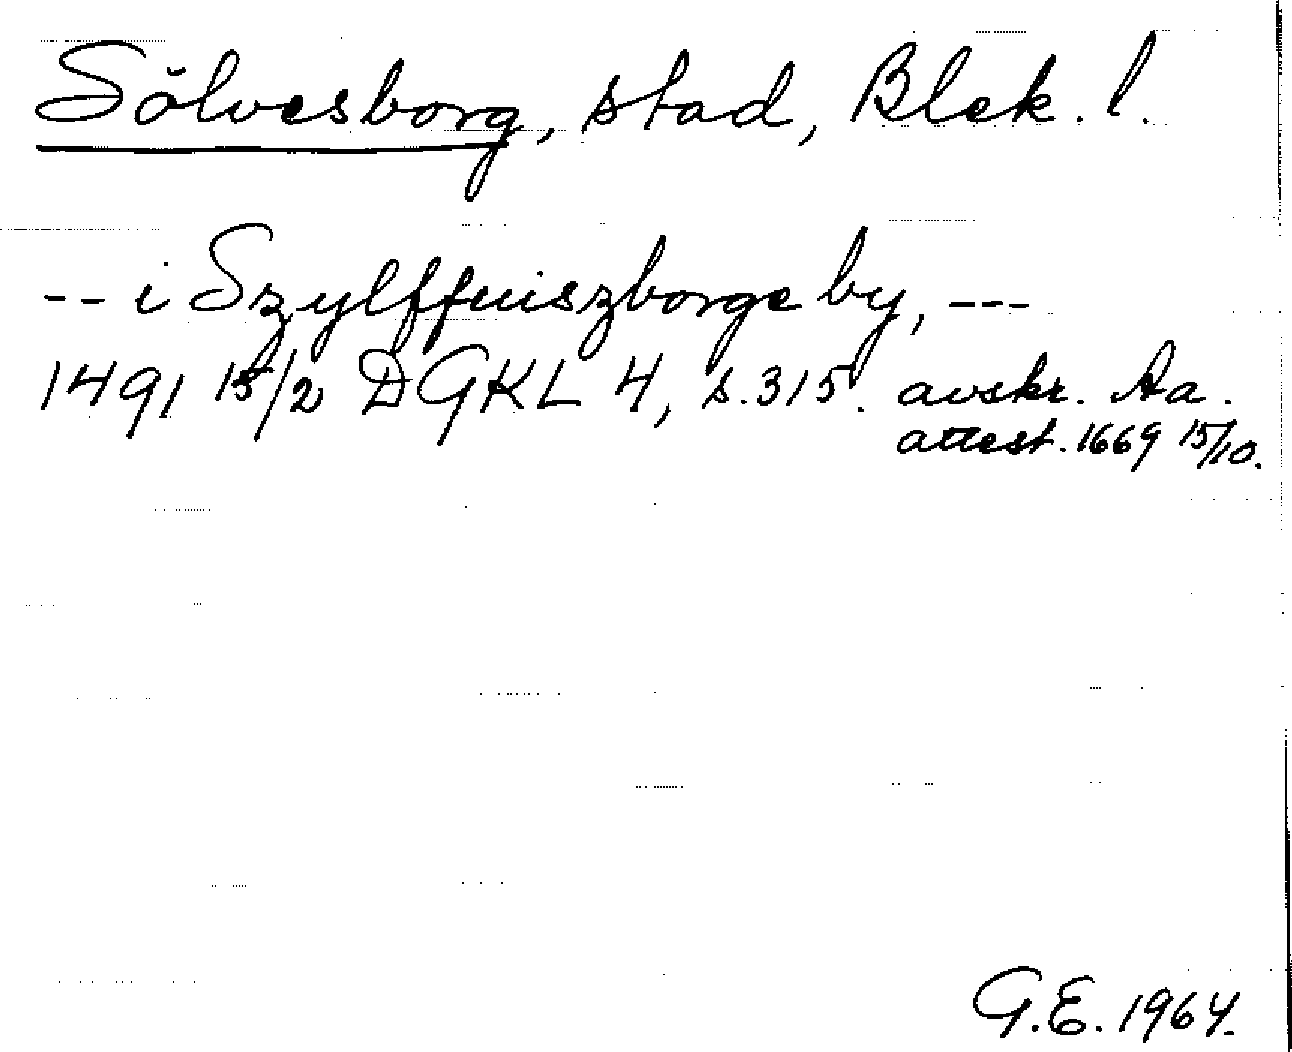 Sölvesborg, stad, Blek. l.
-- i Szylffuiszborge by, ---
1491 15/2 DGKL 4, s. 315. avskr. Aa.
attest. 1669 15/10.
G.E. 1964.